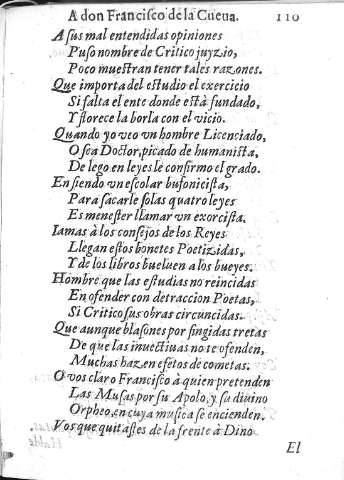 A don Francisco de la Cueua. 110
A sus mal entendidas opiniones
Puso nombre de Critico juyzio,
Poco muestran tener tales razones.
Que importa del estudio el exercicio
Si falta el ente donde está fundado,
Y florece la borla con el vicio.
Quando yo veo vn hombre Licenciado,
O sea Doctor, picado de humanista,
De lego en leyes le confirmo el grado.
En siendo vn escolar bufonicista,
Para sacarle solas quatro leyes
Es menester llamar vn exorcista.
Iamas à los consejos de los Reyes
Llegan estos bonetes Poetizidas,
Y de los libros bueluen a los bueyes.
Hombre que las estudias no reincidas
En ofender con detraccion Poetas,
Si Critico sus obras circuncidas.
Que aunque blasones por fingidas tretas
De que las inuectiuas no te ofenden,
Muchas haz en efetos de cometas.
O vos claro Francisco à quien pretenden
Las Musas por su Apolo, y su diuino
Orpheo, en cuya musica se encienden.
Vos que quitastes de la frente à Dino
El